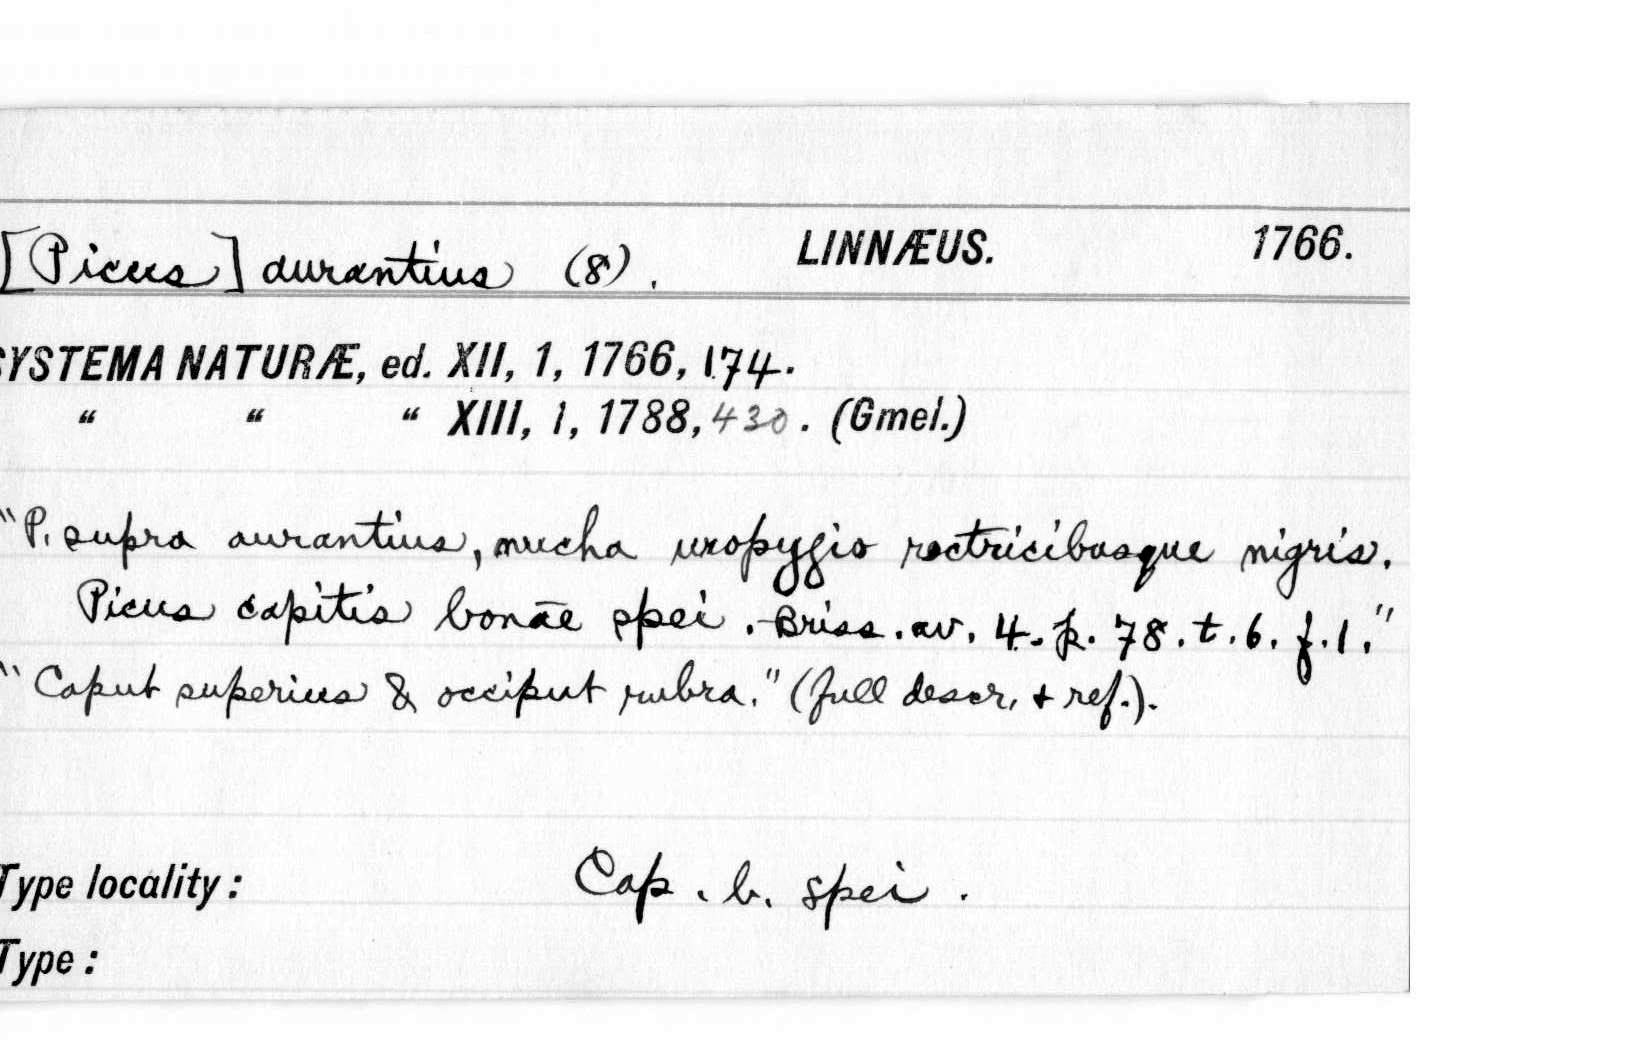 [Picus] aurantius (8). LINNÆUS. 1766.
SYSTEMA NATURÆ, ed. XII, 1, 1766, 174.
“ “ “ XIII, 1, 1788, 430. (Gmel.)
"P. supra aurantius, nucha uropygio rectricibusque nigris.
Picus capitis bonae spei. Briss. av. 4. p. 78. t. 6. f. 1."
"Caput superius & occiput rubra." (full descr. + ref.).
Type locality: Cap. b. spei.
Type: